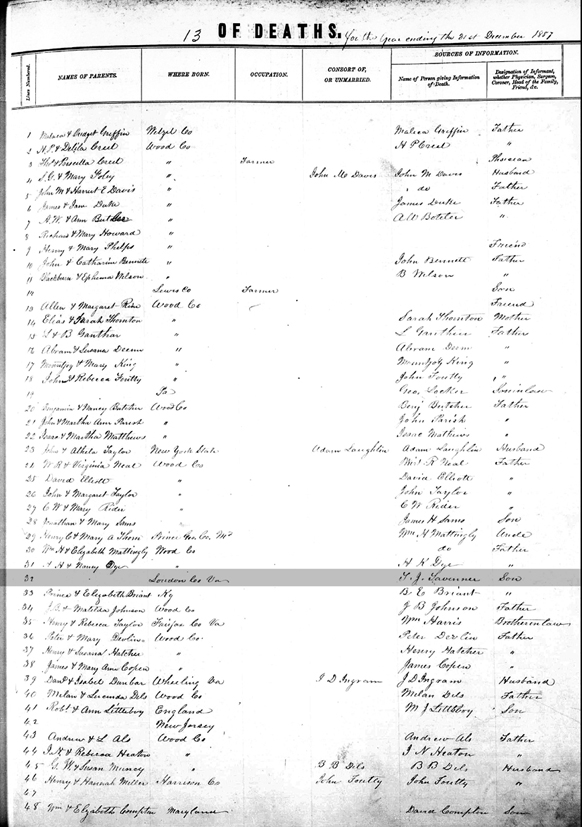 13 OF DEATHS, For the Year ending the 31st December 1857
SOURCES OF INFORMATION.
Lines Numbered. NAMES OF PARENTS. WHERE BORN. OCCUPATION. CONSORT OF, OR UNMARRIED. Name of Person giving Information of Death. Designation of Informant, whether Physician, Surgeon, Coroner, Head of the Family, Friend, &c.
1 Griffin Wetzel Co Griffin Father
2 & Delila Creel Wood Co H P Creel "
3 Thos & Priscilla Creel " Farmer
4 & Mary Foley " John M Davis John M Davis Husband
5 John M & Harriet E Davis " do Father
6 James & Jane Duke " James Duke Father
7 A. W. & Ann " A W "
8 Richard & Mary Howard "
9 Henry & Mary Phelps " Friend
10 John & Catharine Bennett " John Bennett Father
11 & Ephemia Wilson " B Wilson "
Lewis Co Farmer Son
Allen & Margaret Wood Co Friend
Elias & Sarah Thornton " Sarah Thornton Mother
& B " L Father
Abram & Deem " Abram Deem "
& Mary King " King "
18 John & Rebecca Foutty " John Foutty "
19
20 Benjamin & Nancy Butcher Wood Co Benj Butcher Father
21 John & Martha Ann Parish " John Parish "
22 Isaac & Martha Matthews " Isaac "
23 John & Taylor New York State Adam Laughlin Adam Laughlin Husband
24 W. R & Virginia Neal Wood Co R Neal Father
25 David Elliott " David Elliott "
26 John & Margaret Taylor " John Taylor "
27 C W & Mary Rider " C W Rider "
28 Jonathan & Mary Sams " James H Sams Son
29 Henry C & Mary A Wm H Mattingly Uncle
30 Wm H & Elizabeth Mattingly Wood Co do Father
31 & Nancy Dye " Dye "
32 London Co Va Lavenner Son
33 & Elizabeth Briant Ky B. E Briant "
34 & Matilda Johnson Wood Co J B Johnson Father
35 Henry & Rebecca Taylor Fairfax Co Va Wm Harris Brotherinlaw
36 Peter & Mary Devlin Wood Co Peter Devlin Father
37 Henry & Hatcher " Henry Hatcher "
38 James & Mary Ann Copen " James Copen "
39 & Isabel Dunbar Wheeling Va J D Ingram J D Ingram Husband
40 Milan & Lucinda Dils Wood Co Milan Dils Father
41 Robt & Ann Littleboy England M J Littleboy Son
42 New Jersey
43 Andrew & L Als Wood Co Andrew Als Father
44 & Rebecca Heaton " J N Heaton "
45 & Susan Muncy " B B Dils B B Dils Husband
46 Henry & Hannah Miller Harrison Co John Foutty John Foutty "
67
48 Wm & Elizabeth Compton Maryland David Compton Son